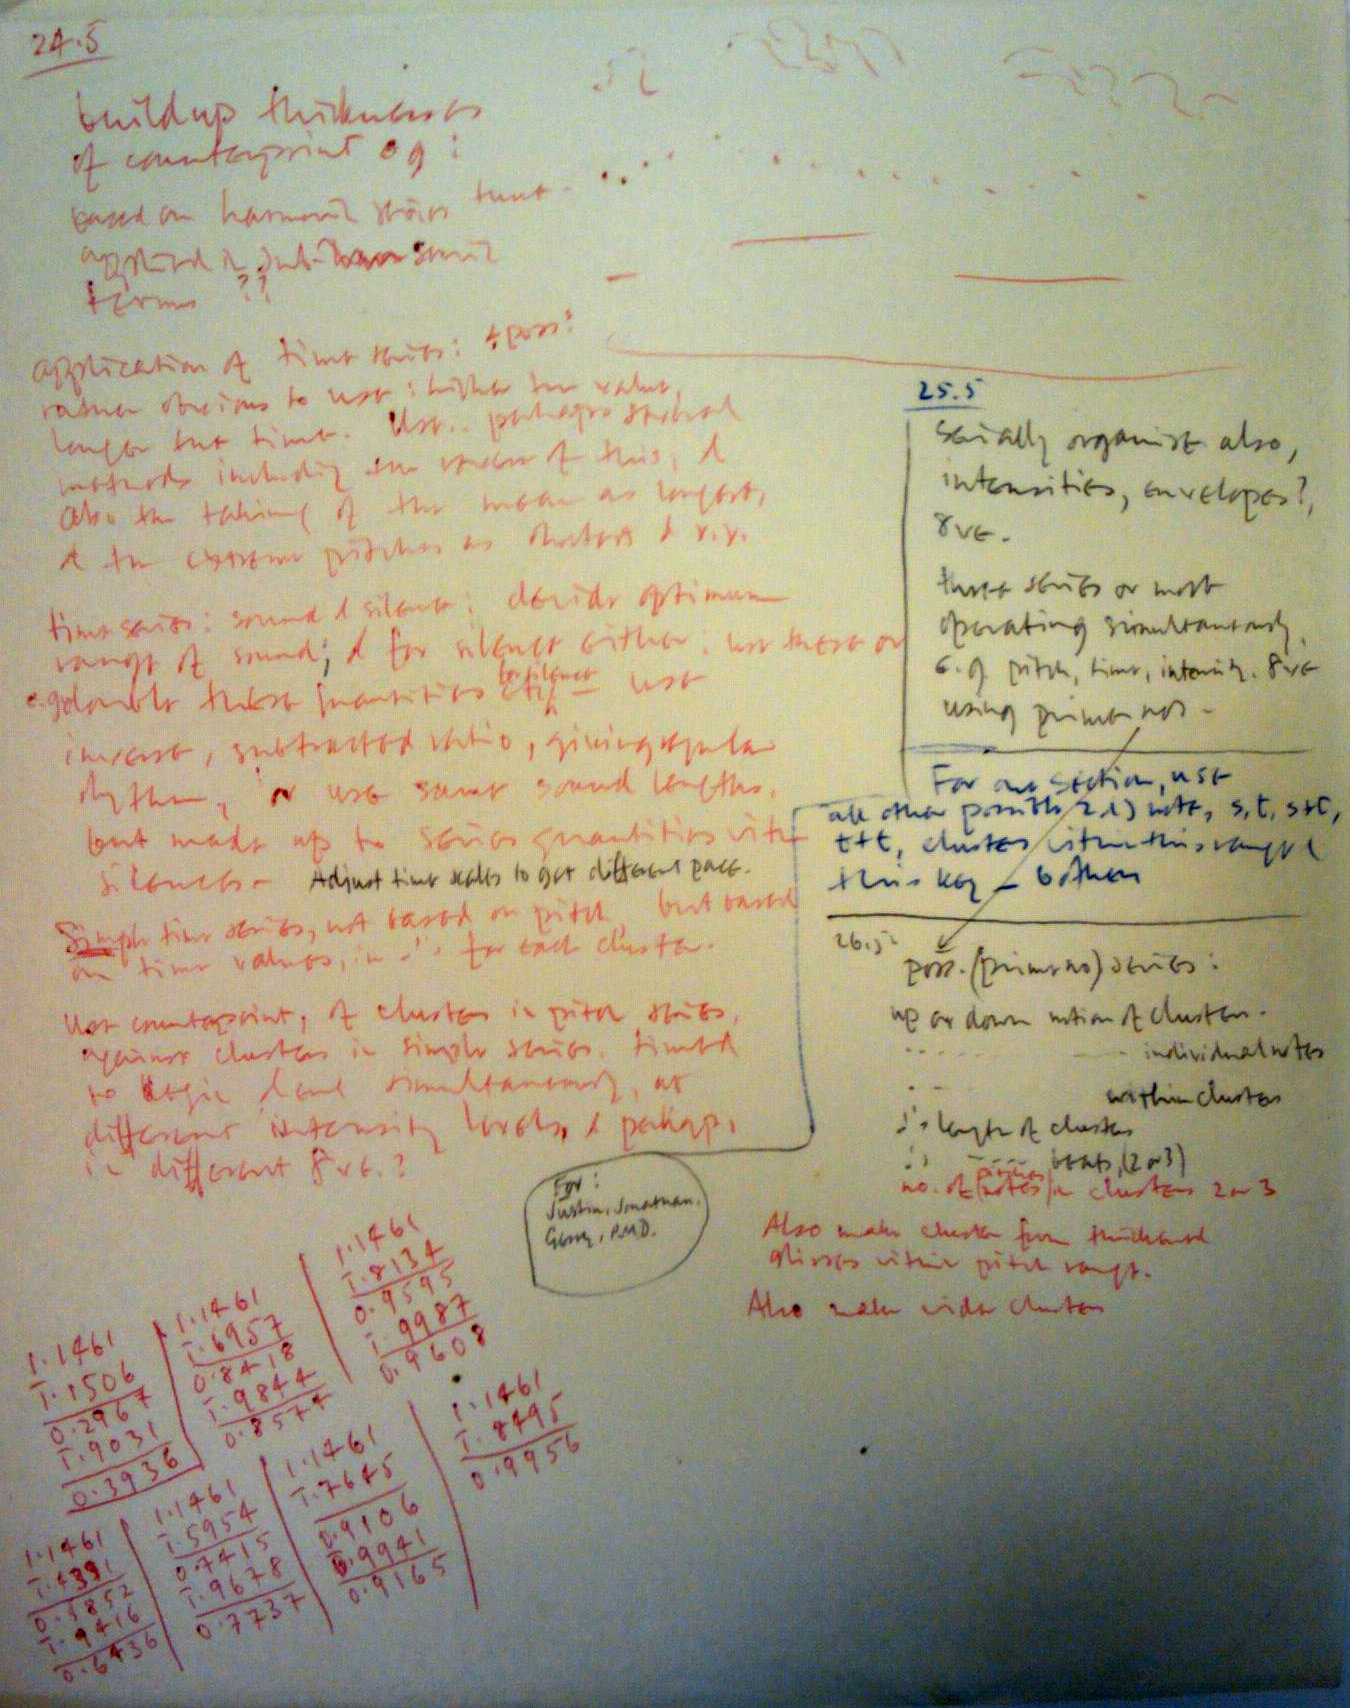 24.5
buildup thicknesses
of counterpoint eg:
based on harmonic series
applied in sub-
terms ??
application of time series: + poss:
rather obvious to use: higher the value,
longer the time. Use.. perhaps several
methods including the of this, &
also the taking of the mean as longest,
& the extreme pitches as shortest & v.v.
time series: sound & silence: decide optimum
range of sound; & for silence either: use these or
e.g. double these quantities etc for silence use
inverse, subtracted ratio, giving regular
rhythm, or use same sound lengths,
but made up to series quantities with
silences - Adjust time scales to get different pace.
Simple time series, not based on pitch, but based
on time values, in ♩'s for each cluster.
Use counterpoint, of clusters in pitch series,
against clusters in simple series. timed
to begin & end simultaneously, at
different intensity levels, & perhaps
in different 8ve.?
25.5
serially organise also,
intensities, envelopes?,
8ve.
three series or more
operating simultaneously.
e.g. pitch, time, intensity, 8ve
using prime nos.
For one section, use
all other possible 2 & 3 note, s, t, s+t,
t+t, clusters within this range &
this key - 6 others
26.5
poss. (prime no) series:
up or down motion of clusters.
individual notes
within clusters
♩'s length of clusters
beats, (2 or 3)
no. of pitches/notes in clusters 2 or 3
Also make cluster from thickened
glisses within pitch range.
Also make wider clusters
For:
Justin, Jonathan,
P.M.D.
1.1461
1.8134
0.9595
1.9987
0.9608
1.1461
1.6957
0.8418
1.9844
0.8574
1.1461
1.1506
0.2967
1.9031
0.3936
1.1461
1.8495
0.9956
1.1461
1.7645
0.9106
0.9941
0.9165
1.1461
1.5954
0.7415
1.9678
0.7737
1.1461
1.4391
0.5852
1.9416
0.6436